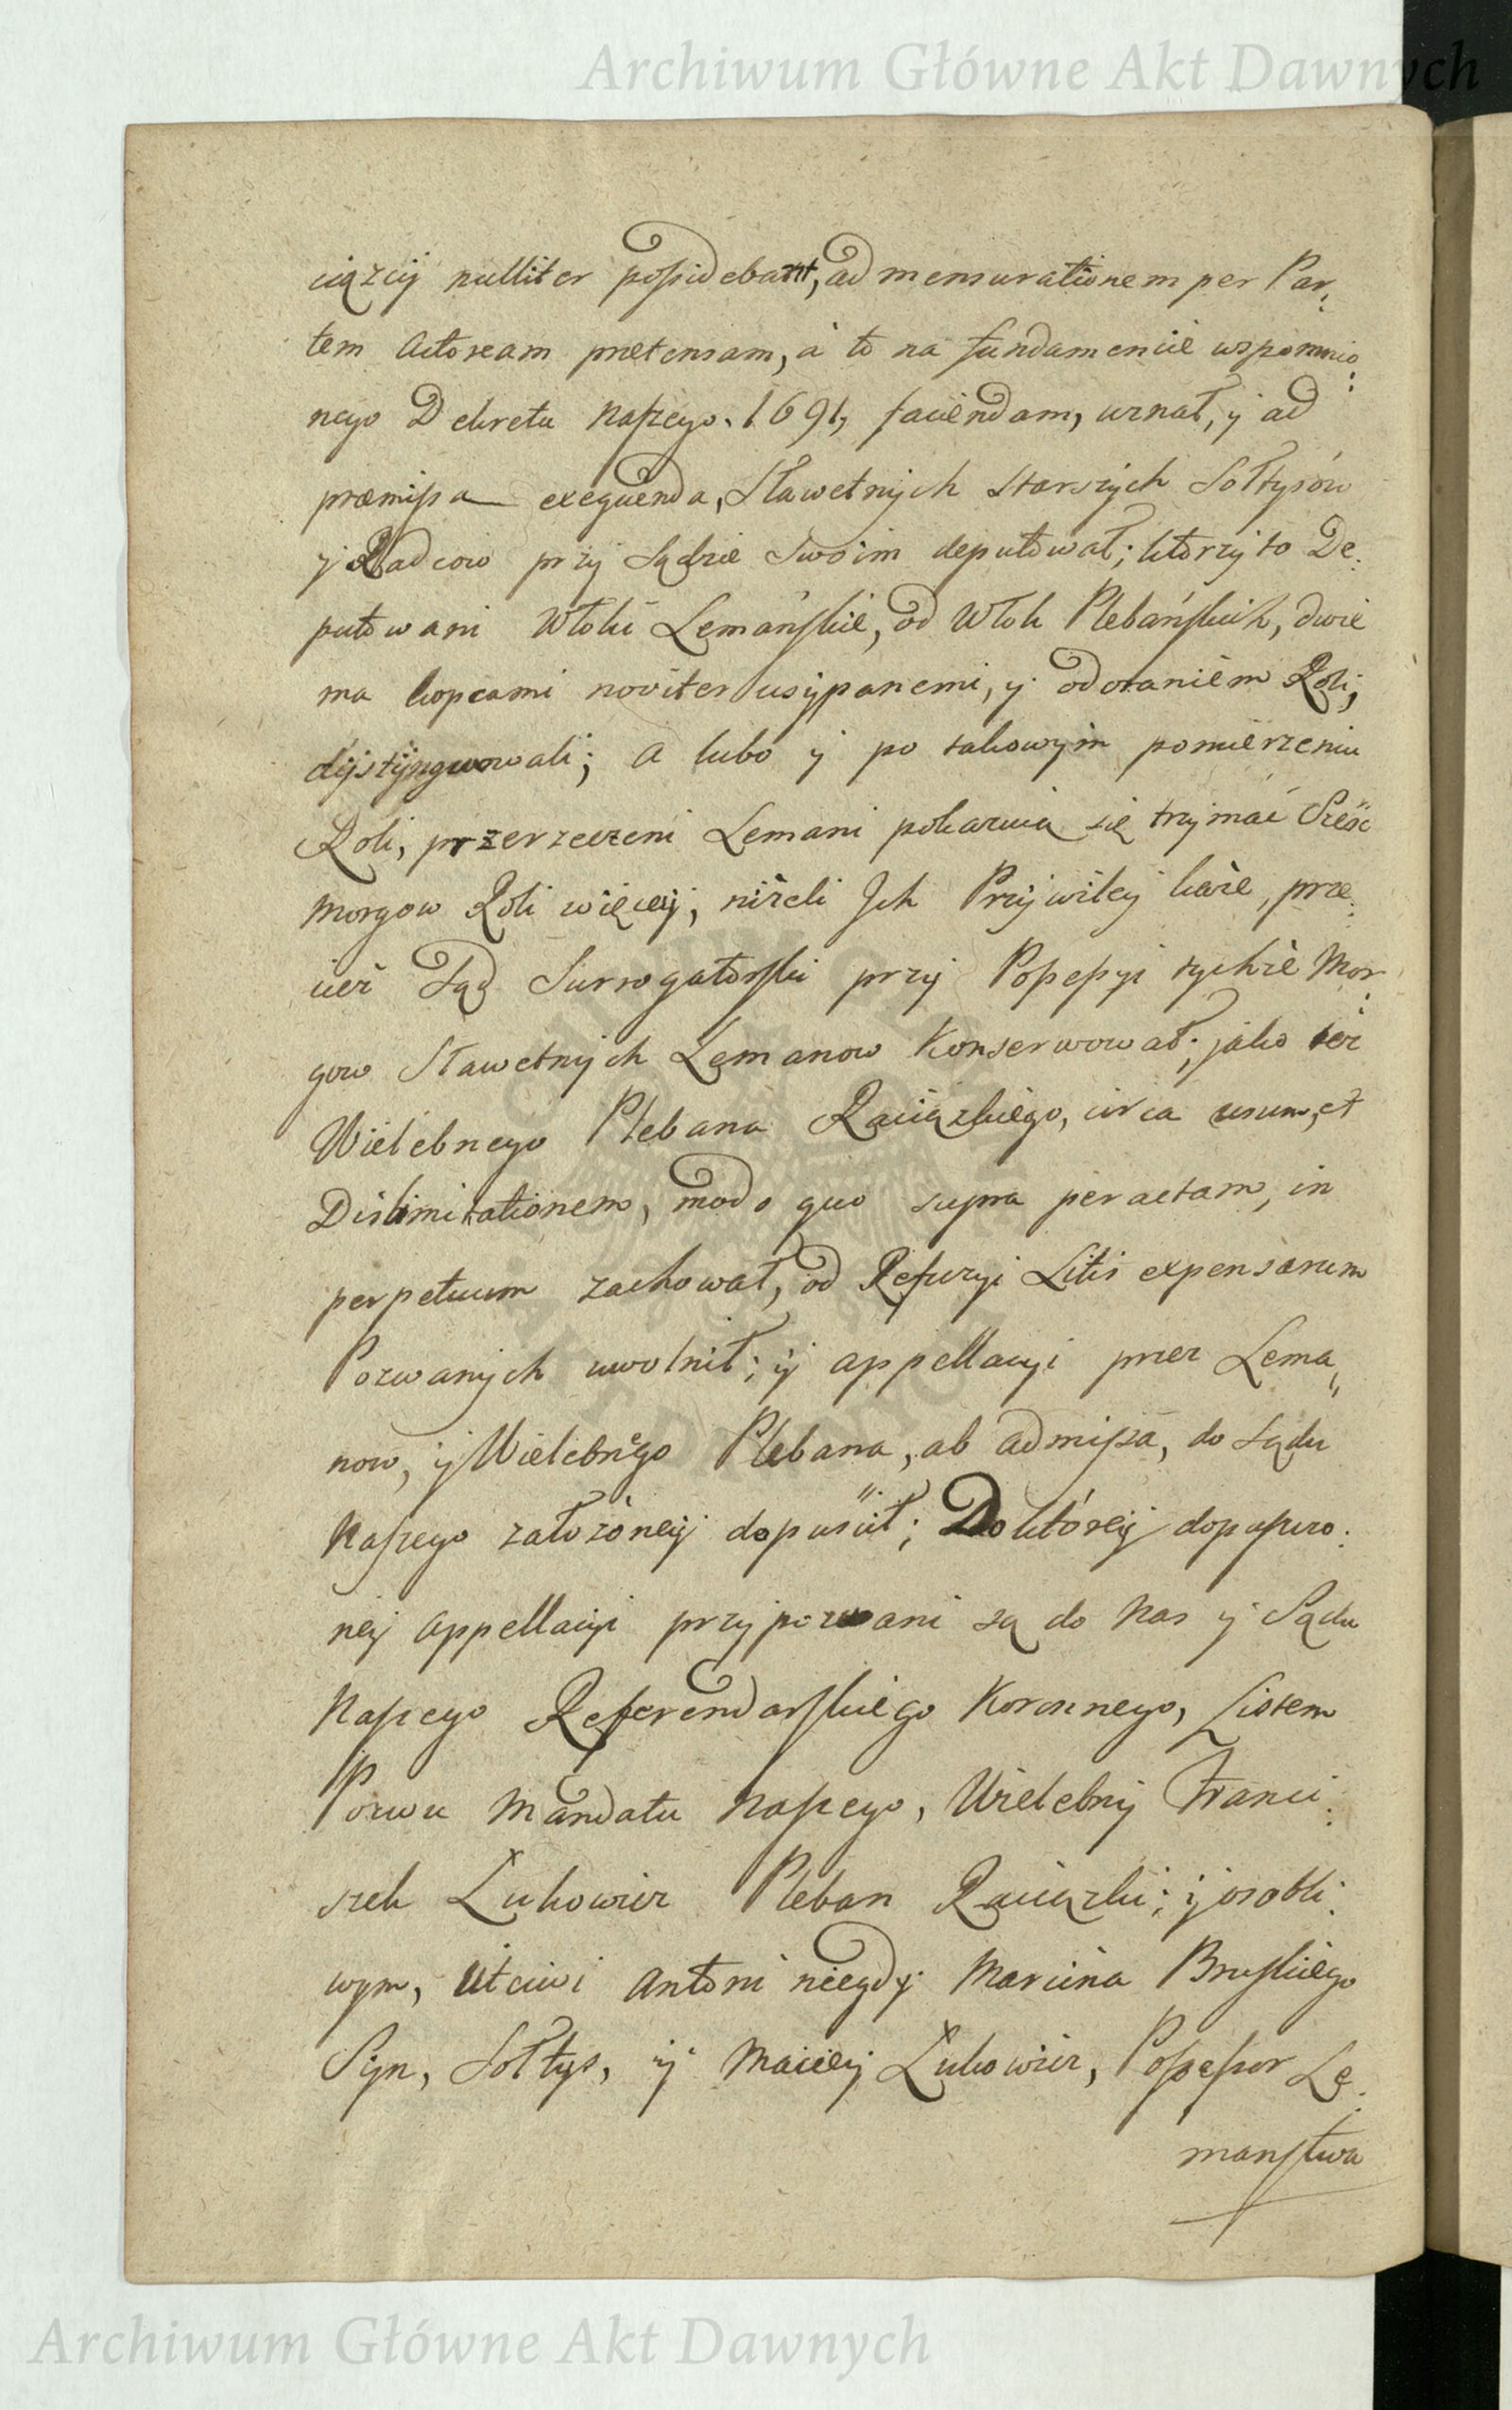 Archiwum Główne Akt Dawnych
ciązcÿ nulliter possidebant, ad mensurationem per Par:
tem Actoream prætensam, à to na fundamencie wspomnio:
nego Dekretu Naszego. 1691, faciendam, uznał, ÿ ad
præmissa exequenda, Sławetnych starszych Sołtysow
ÿ Radcow przÿ Sądzie swoim deputował; ktorzÿ to De:
putowani Włoki Lemańskie, od Włok Plebańskich, dwie
ma kopcami noviter usÿpanemi, ÿ odoraniem Roli;
dÿstÿngwowali; a lubo ÿ po takowÿm pomierzeniu
Roli, przerzeczeni Lemani pokazuią się trzymać Sześć
Morgow Roli więceÿ, niżeli Jch Przÿwileÿ każe, prze:
cież Sąd Surrogatorski przÿ Possessyi tychże Mor:
gow Sławetnÿch Lemanow Konserwował; jako też
Wielebnego Plebana Raciązkiego, circa usum, et
Dislimitationem, modo quo supra peractam, in
perpetuum zachował, od Refuzyi Litis expensarum
Pozwanÿch uwolnił; ÿ appellacyi przez Lema„
now, ÿ Wielebnego Plebana, ab admissa, do Sądu
Naszego założoneÿ dopuścił; Do ktoreÿ dopuszczo:
neÿ appellacyi przÿpozwani są do Nas ÿ Sądu
Naszego Referendarskiego Koronnego, Listem
Pozwu Mandatu Naszego, Wielebnÿ Franci:
szek Lukowicz Pleban Raciązki; ÿ osobli:
wym, Utciwi Antoni niegdÿ Marcina Bruskiego
Sÿn, Sołtys, ÿ Macieÿ Lukowicz, Possessor Le:
manstwa
Archiwum Główne Akt Dawnych